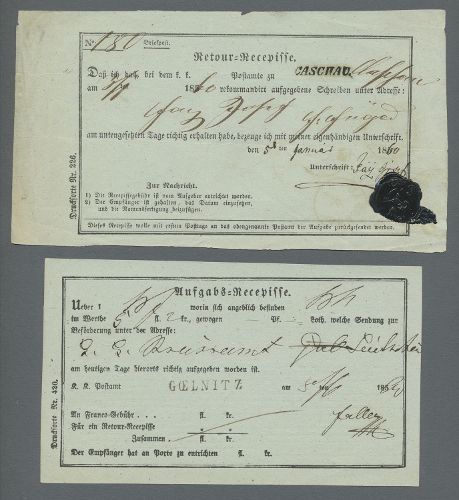 Nr. 180 Briefpost.
Retour-Recepisse.
Daß ich das, bei dem k. k. Postamte zu CASCHAU
am 3/1 1860 rekommandirt aufgegebene Schreiben unter Adresse:
Josef
am untengesetzten Tage richtig erhalten habe, bezeuge ich mit meiner eigenhändigen Unterschrift.
den 5 ten Januar 1860
Unterschrift:
Zur Nachricht.
1) Die Recepissegebühr ist vom Aufgeber entrichtet worden.
2) Der Empfänger ist gehalten, das Datum einzufügen,
und die Namensfertigung beizufügen.
Dieses Recepisse wolle mit erstem Posttage an das obengenannte Postamt der Aufgabe zurückgesendet werden.
Druckforte Nr. 226.
Aufgabs-Recepisse.
Ueber 1 worin sich angeblich befinden
im Werthe 5 fl. 2 kr., gewogen — Pf. — Loth, welche Sendung zur
Beförderung unter der Adresse:
am heutigen Tage hierorts richtig aufgegeben worden ist.
K. K. Postamt GŒLNITZ am 185
An Franco-Gebühr . . . fl. kr.
Für ein Retour-Recepisse
Zusammen fl. kr.
Der Empfänger hat an Porto zu entrichten fl. kr.
Druckforte Nr. 430.